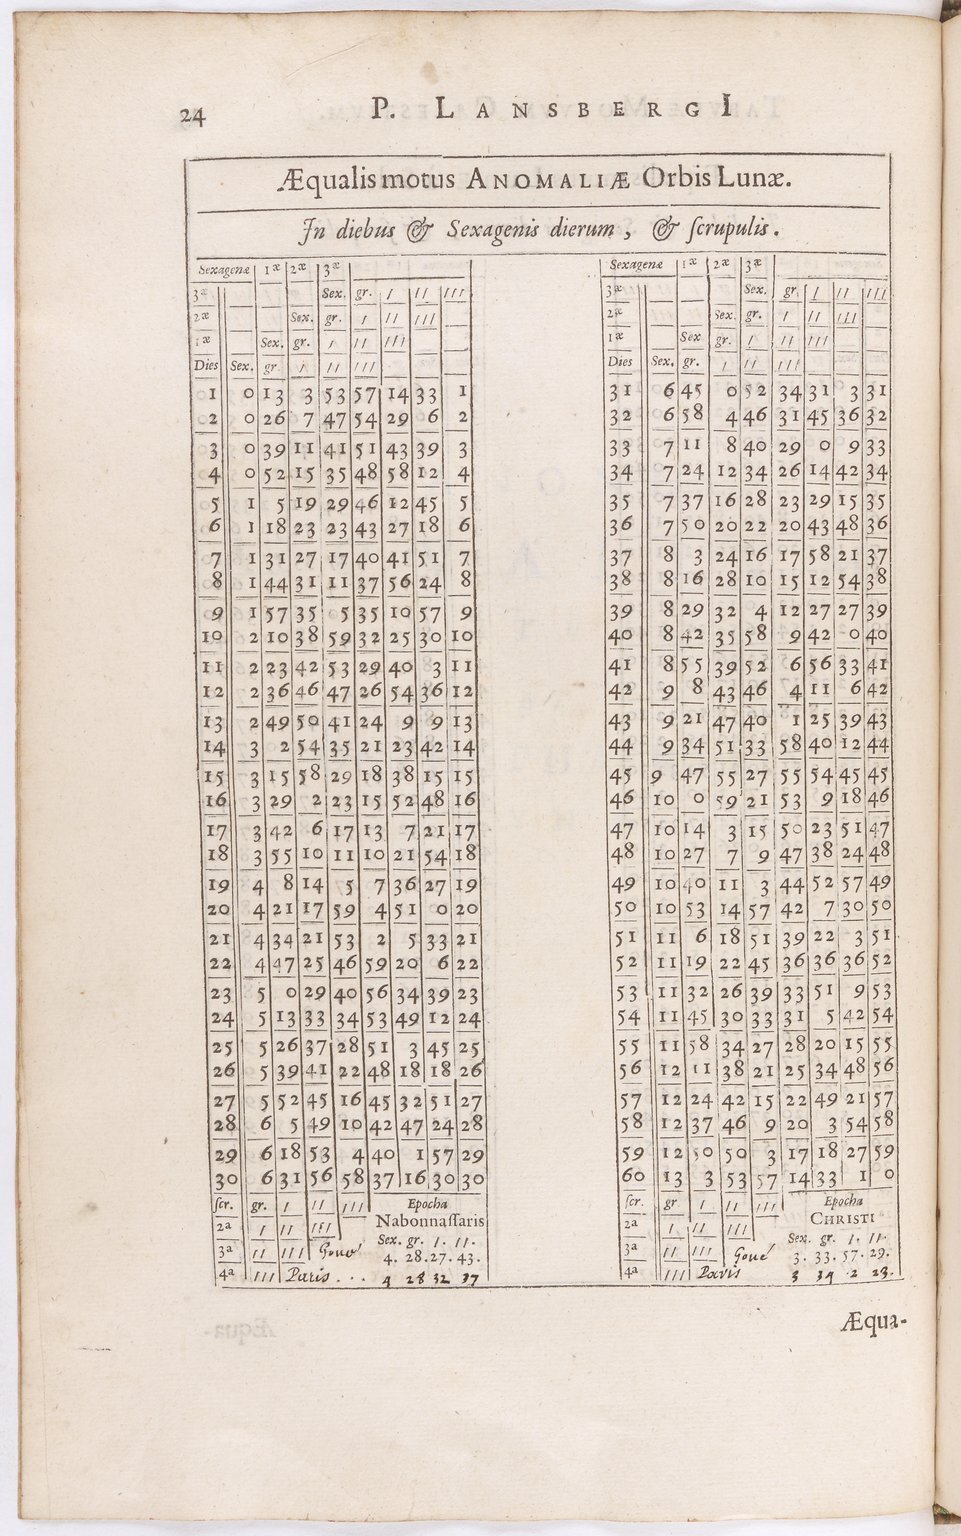 24
P. LANSBERGI
Æqualis motus ANOMALIÆ Orbis Lunæ.
In diebus & Sexagenis dierum, & ſcrupulis.
Sexagenæ 1æ 2æ 3æ
3æ Sex. gr. / // ///
2æ Sex. gr. / // ///
1æ Sex. gr. / // ///
Dies Sex. gr. / // ///
1 0 13 3 53 57 14 33 1
2 0 26 7 47 54 29 6 2
3 0 39 11 41 51 43 39 3
4 0 52 15 35 48 58 12 4
5 1 5 19 29 46 12 45 5
6 1 18 23 23 43 27 18 6
7 1 31 27 17 40 41 51 7
8 1 44 31 11 37 56 24 8
9 1 57 35 5 35 10 57 9
10 2 10 38 59 32 25 30 10
11 2 23 42 53 29 40 3 11
12 2 36 46 47 26 54 36 12
13 2 49 50 41 24 9 9 13
14 3 2 54 35 21 23 42 14
15 3 15 58 29 18 38 15 15
16 3 29 2 23 15 52 48 16
17 3 42 6 17 13 7 21 17
18 3 55 10 11 10 21 54 18
19 4 8 14 5 7 36 27 19
20 4 21 17 59 4 51 0 20
21 4 34 21 53 2 5 33 21
22 4 47 25 46 59 20 6 22
23 5 0 29 40 56 34 39 23
24 5 13 33 34 53 49 12 24
25 5 26 37 28 51 3 45 25
26 5 39 41 22 48 18 18 26
27 5 52 45 16 45 32 51 27
28 6 5 49 10 42 47 24 28
29 6 18 53 4 40 1 57 29
30 6 31 56 58 37 16 30 30
ſcr. gr. / // /// Epocha
2a / // /// Nabonnaſſaris
Sex. gr. /. //.
3a // /// Goué 4. 28. 27. 43.
4a /// Paris . . . 4 28 32 37
Sexagenæ 1æ 2æ 3æ
3æ Sex. gr. / // ///
2æ Sex. gr. / // ///
1æ Sex gr. / // ///
Dies Sex. gr. / // ///
31 6 45 0 52 34 31 3 31
32 6 58 4 46 31 45 36 32
33 7 11 8 40 29 0 9 33
34 7 24 12 34 26 14 42 34
35 7 37 16 28 23 29 15 35
36 7 50 20 22 20 43 48 36
37 8 3 24 16 17 58 21 37
38 8 16 28 10 15 12 54 38
39 8 29 32 4 12 27 27 39
40 8 42 35 58 9 42 0 40
41 8 55 39 52 6 56 33 41
42 9 8 43 46 4 11 6 42
43 9 21 47 40 1 25 39 43
44 9 34 51 33 58 40 12 44
45 9 47 55 27 55 54 45 45
46 10 0 59 21 53 9 18 46
47 10 14 3 15 50 23 51 47
48 10 27 7 9 47 38 24 48
49 10 40 11 3 44 52 57 49
50 10 53 14 57 42 7 30 50
51 11 6 18 51 39 22 3 51
52 11 19 22 45 36 36 36 52
53 11 32 26 39 33 51 9 53
54 11 45 30 33 31 5 42 54
55 11 58 34 27 28 20 15 55
56 12 11 38 21 25 34 48 56
57 12 24 42 15 22 49 21 57
58 12 37 46 9 20 3 54 58
59 12 50 50 3 17 18 27 59
60 13 3 53 57 14 33 1 0
ſcr. gr / // /// Epocha
2a / // /// CHRISTI
Sex. gr. /. //.
3a // /// Goué 3. 33. 57. 29.
4a /// Paris 3 34 2 23.
Æqua-